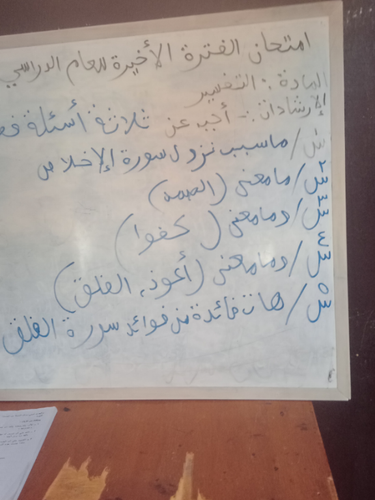 امتحان الفترة الأخيرة للعام الدراسي
المادة : التفسير
الإرشادات :- أجب عن ثلاثة أسئلة فق
س/ ما سبب نزول سورة الإخلاص
س٢/ ما معنى (الصمد)
س٣/ وما معنى (كفوا)
س٤/ وما معنى (أعوذ، الفلق)
س٥/ هات فائدة من فوائد سورة الفلق